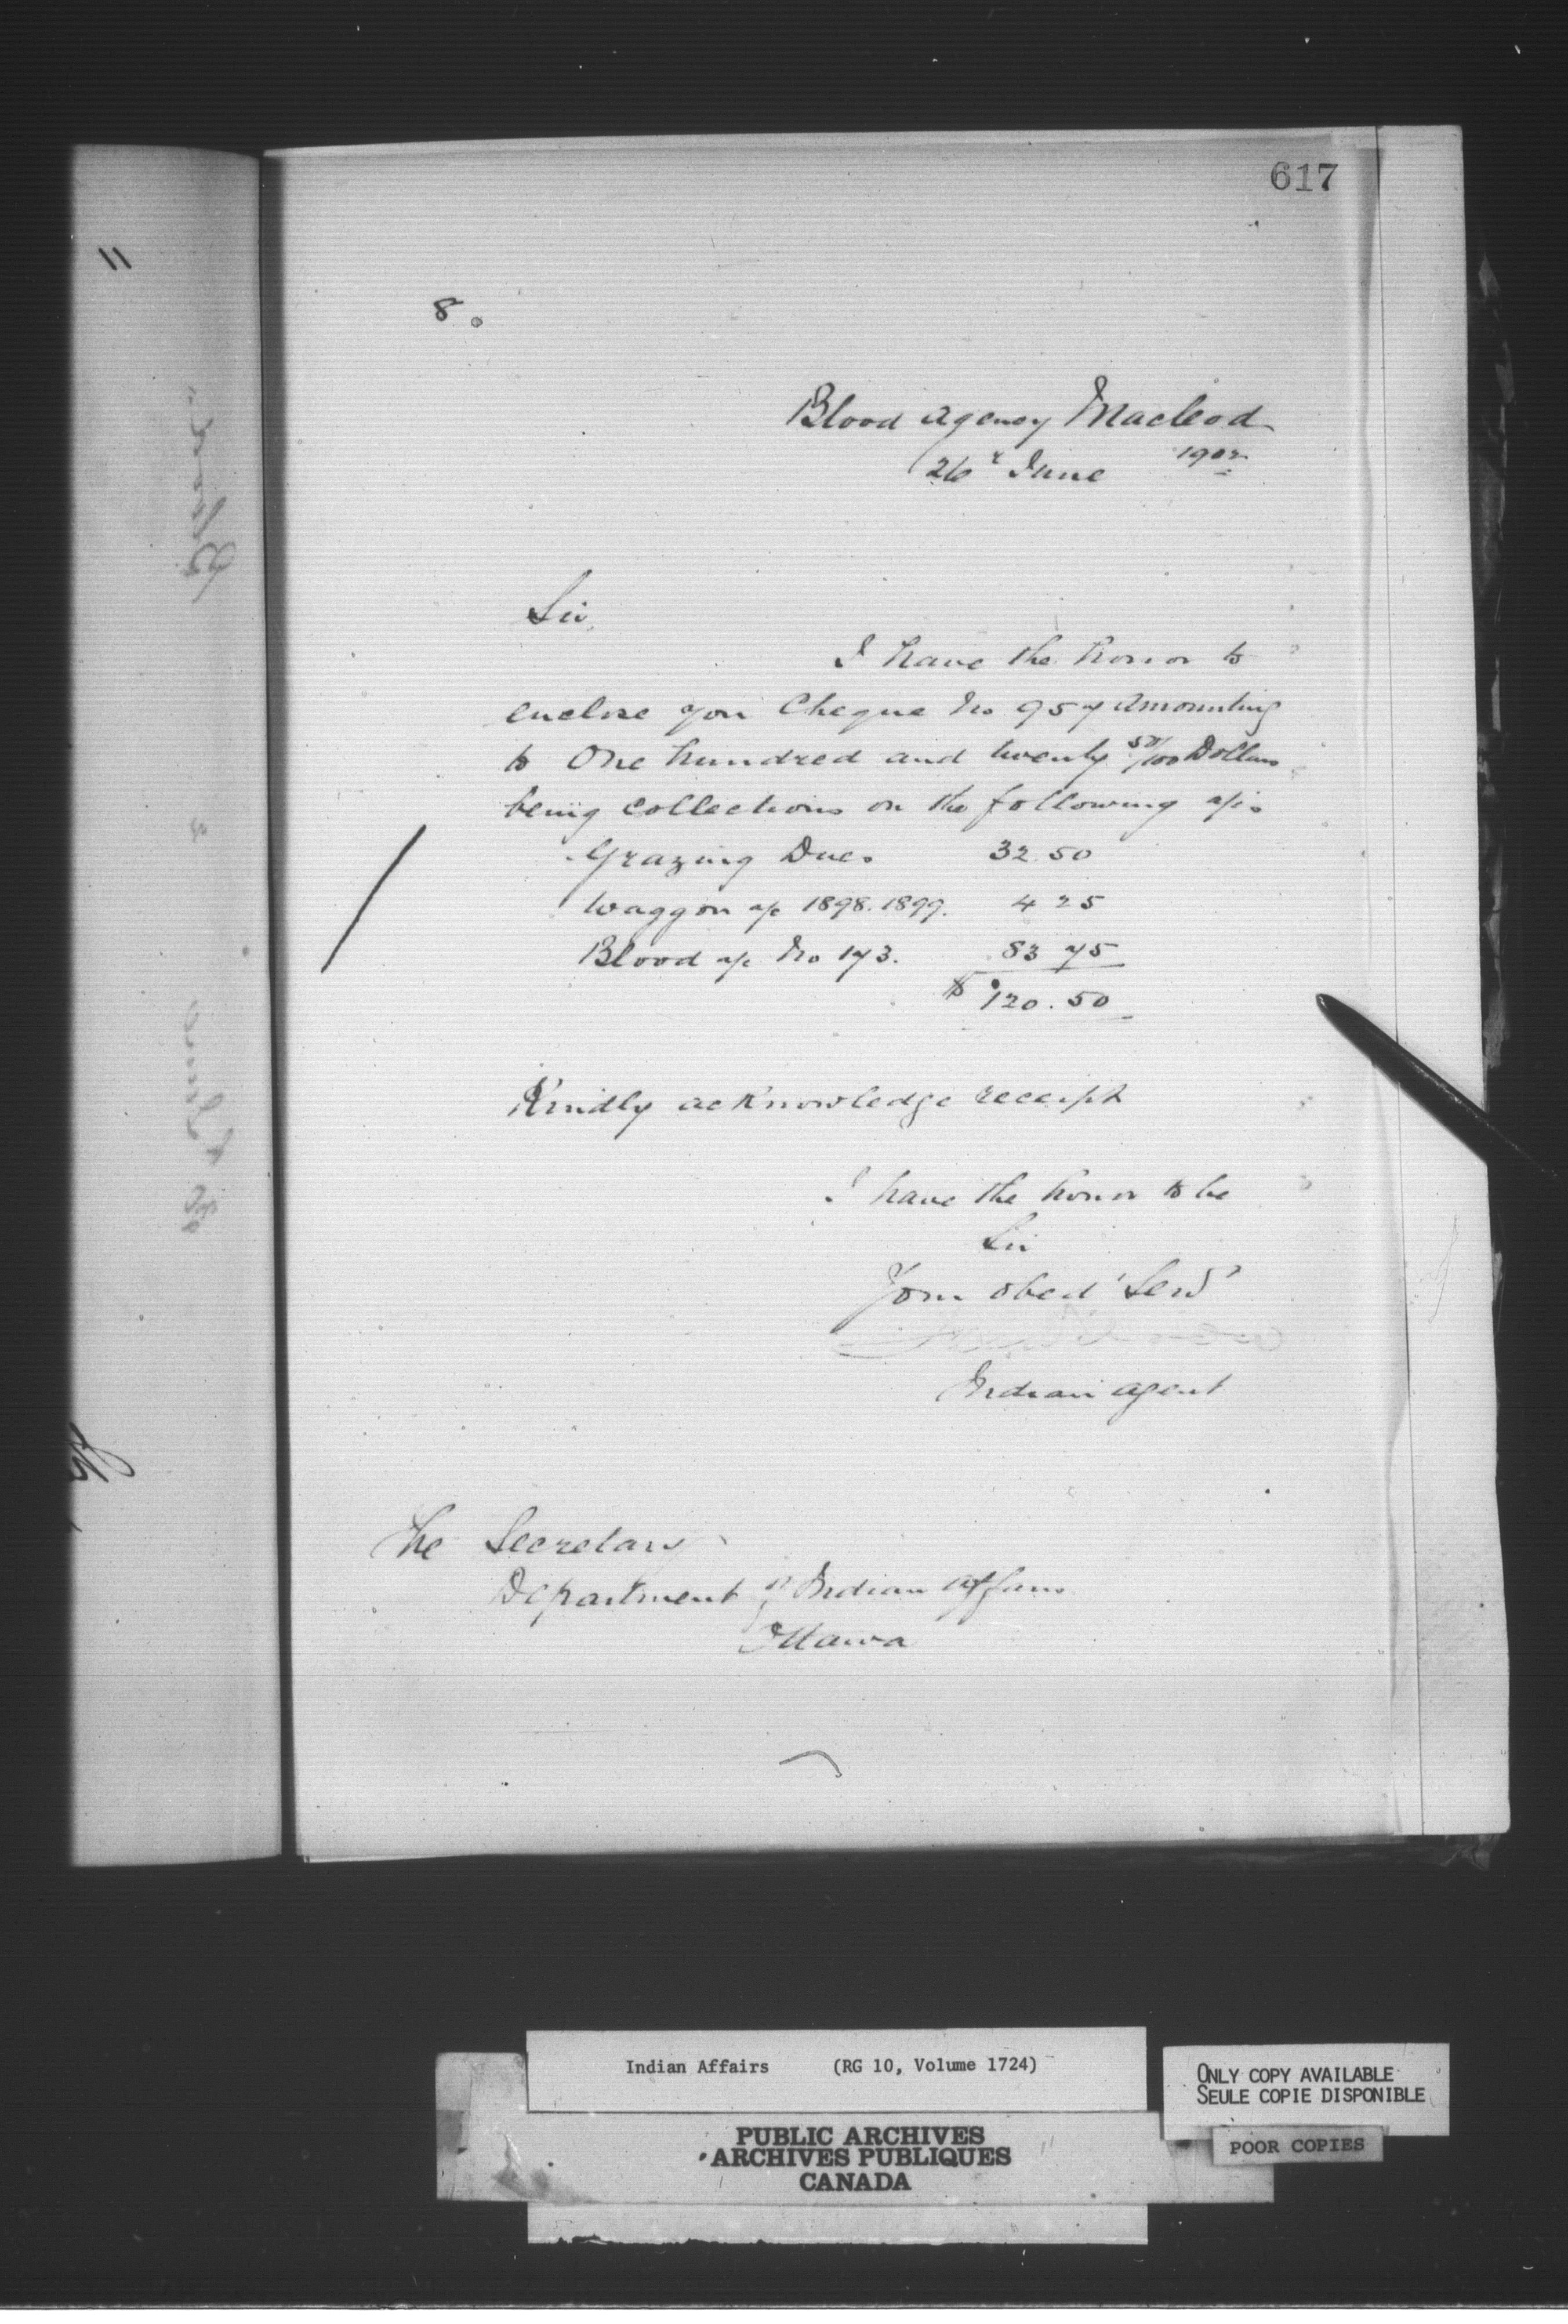 617
8.
Blood Agency Macleod
26th June 1902
Sir,
I have the honor to
enclose you Cheque No 957 Amounting
to One hundred and twenty 50/100 Dollars
being collections on the following a/cs
Grazing Dues 32.50
Waggon a/c 1898.1899. 4 25
Blood a/c No 173. 83 75
$ 120.50
Kindly acknowledge receipt
I have the honor to be
Sir
Your obed' Servt
Indian Agent
The Secretary
Department of Indian Affairs
Ottawa
Indian Affairs (RG 10, Volume 1724)
PUBLIC ARCHIVES
ARCHIVES PUBLIQUES
CANADA
ONLY COPY AVAILABLE
SEULE COPIE DISPONIBLE
POOR COPIES